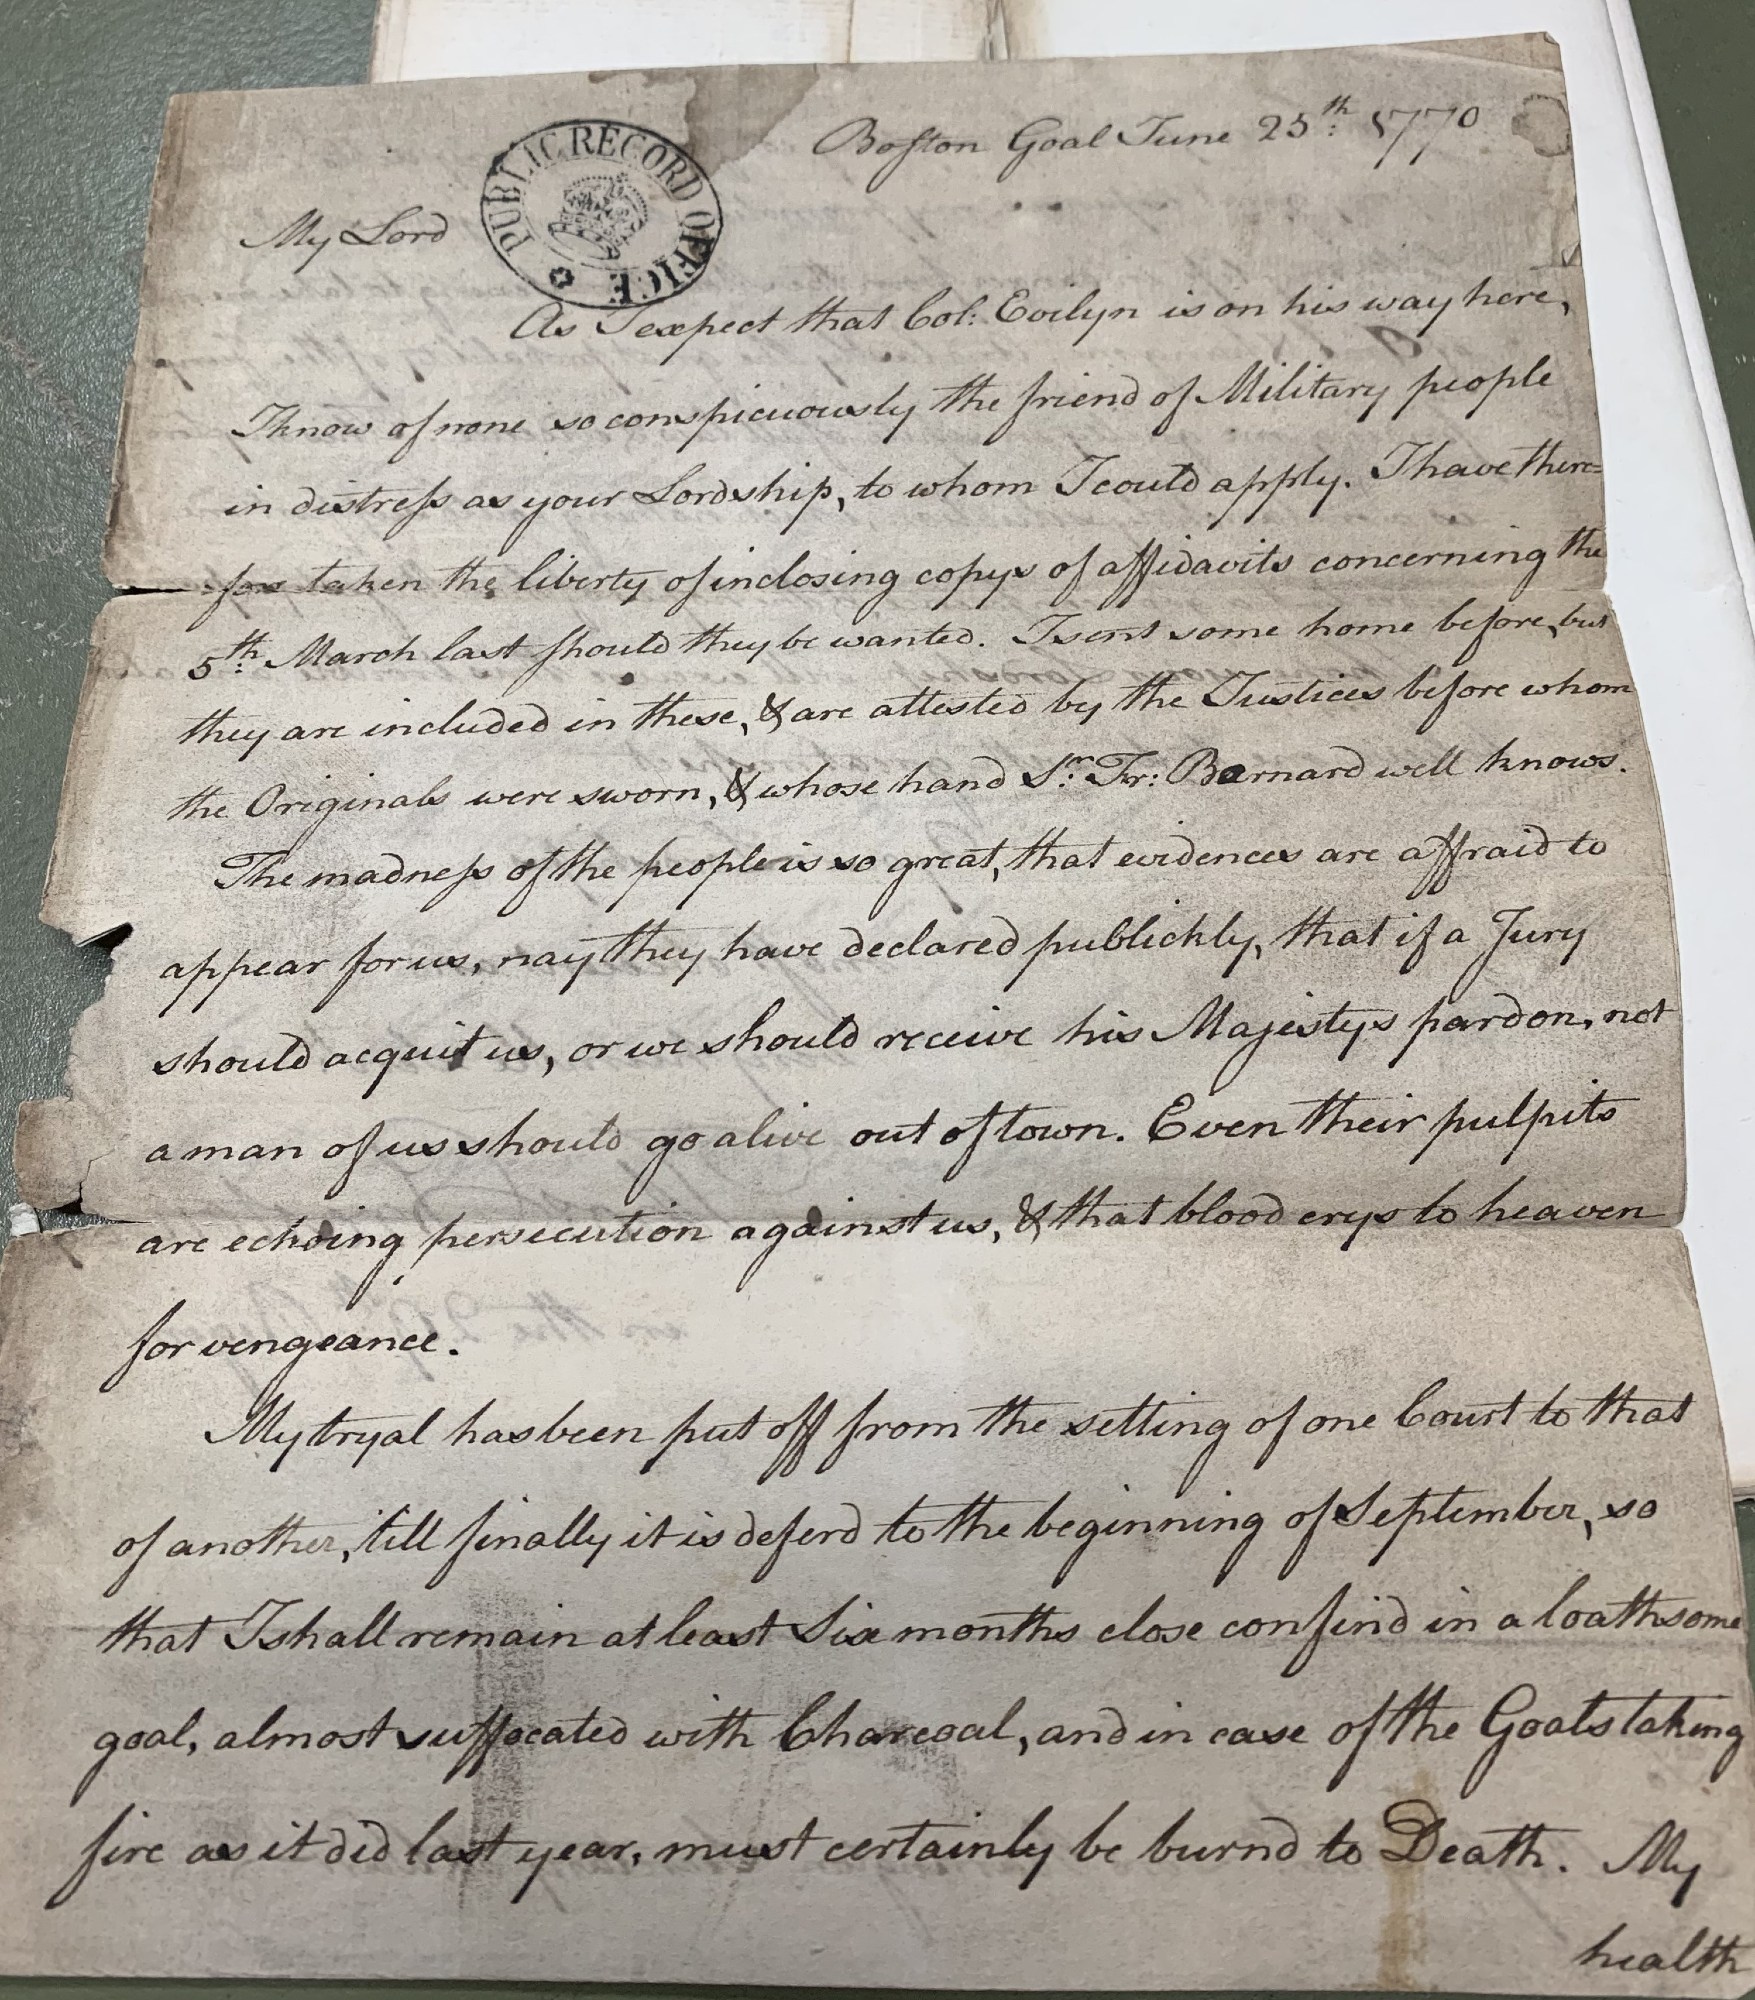 Boston Goal June 25th: 1770
PUBLIC RECORD OFFICE
My Lord
As I expect that Col: Evilyn is on his way here,
I know of none so conspicuously the friend of Military people
in distress as your Lordship, to whom I could apply. I have there=
fore taken the liberty of inclosing copys of affidavits concerning the
5th: March last should they be wanted. I sent some home before, but
they are included in these, & are attested by the Justices before whom
the Originals were sworn, & whose hand Sr. Fr: Barnard well knows.
The madness of the people is so great, that evidences are affraid to
appear for us, nay they have declared publickly, that if a Jury
should acquit us, or we should receive his Majestys pardon, not
a man of us should go alive out of town. Even their pulpits
are echoing persecution against us, & that blood crys to heaven
for vengeance.
My tryal has been put off from the setting of one Court to that
of another, till finally it is deferd to the beginning of September, so
that I shall remain at least Six months close confind in a loathsome
goal, almost suffocated with Charcoal, and in case of the Goals taking
fire as it did last year, must certainly be burnd to Death. My
health